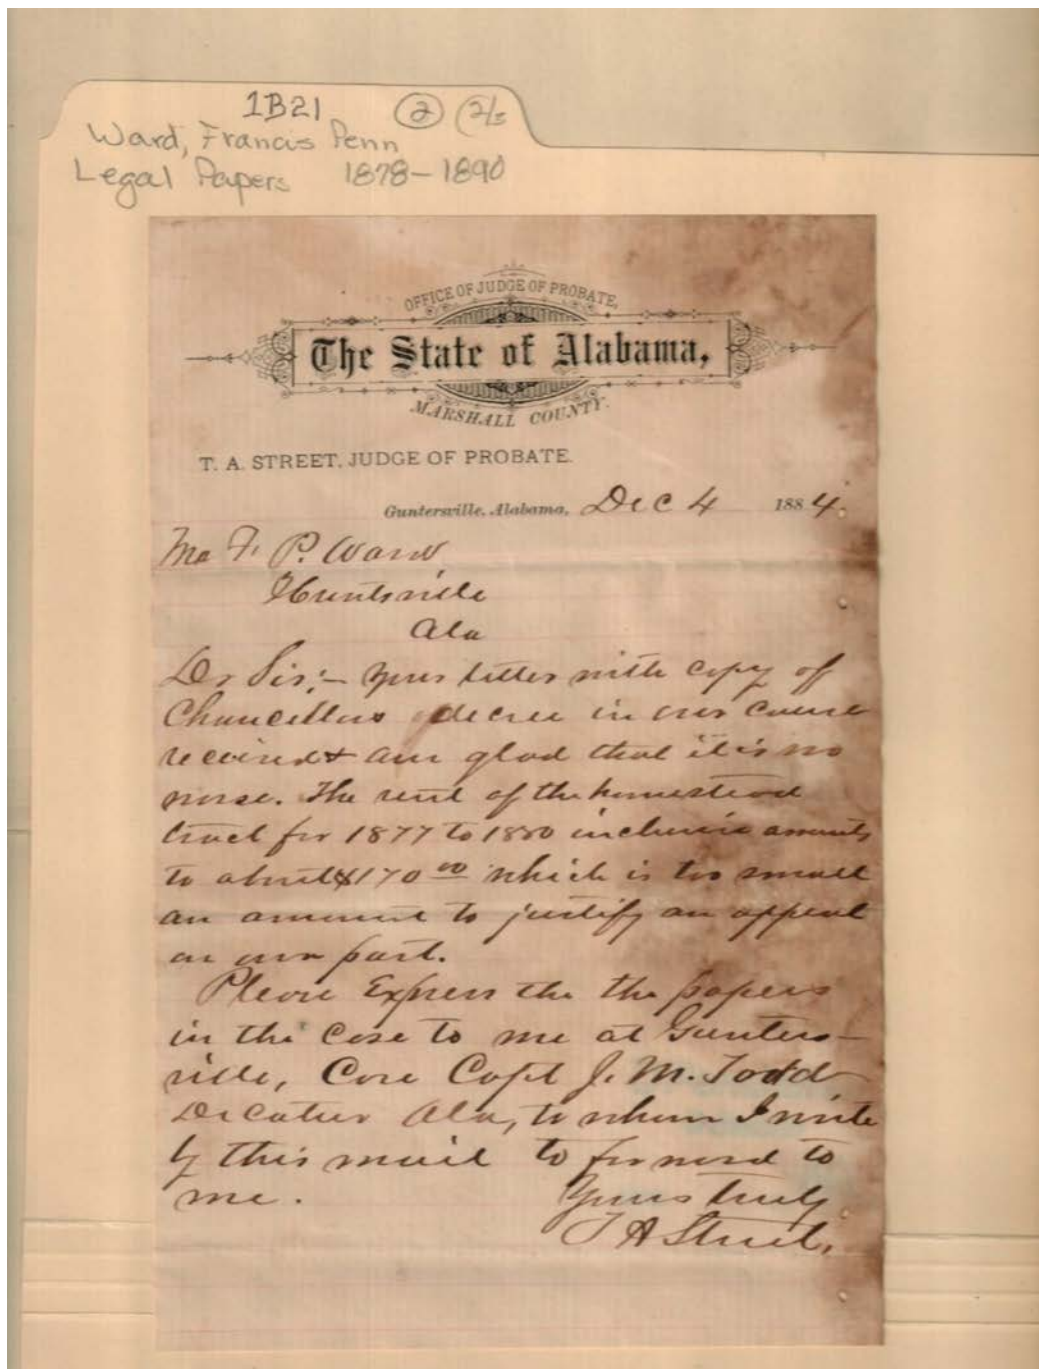 1B21 2 (2/5
Ward, Francis Penn
Legal Papers 1878-1890
OFFICE OF JUDGE OF PROBATE,
The State of Alabama,
MARSHALL COUNTY.
T. A. STREET, JUDGE OF PROBATE.
Guntersville, Alabama, Dec 4 1884.
F. P. Ward
Huntsville
Ala
Dr Sir;- Your letter with copy of
Chancellors decree in our cause
received & am glad that it is no
worse. The rent of the homestead
tract for 1877 to 1880 inclusive amounts
to about $170 00 which is too small
an amount to justify an appeal
on our part.
Please Express the the papers
in the Case to me at Gunters-
ville, Care Capt J. M. Todd
Decatur Ala, to whom I write
by this mail to forward to
me. Yours truly
T A Street,